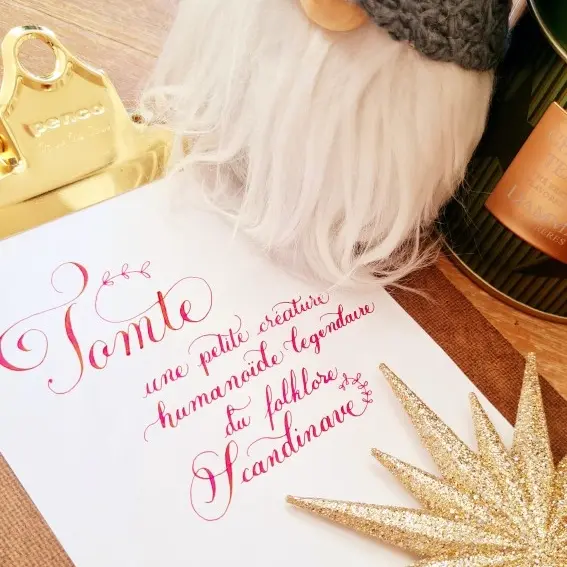 penco
Tomte
une petite créature
humanoïde légendaire
du folklore
Scandinave